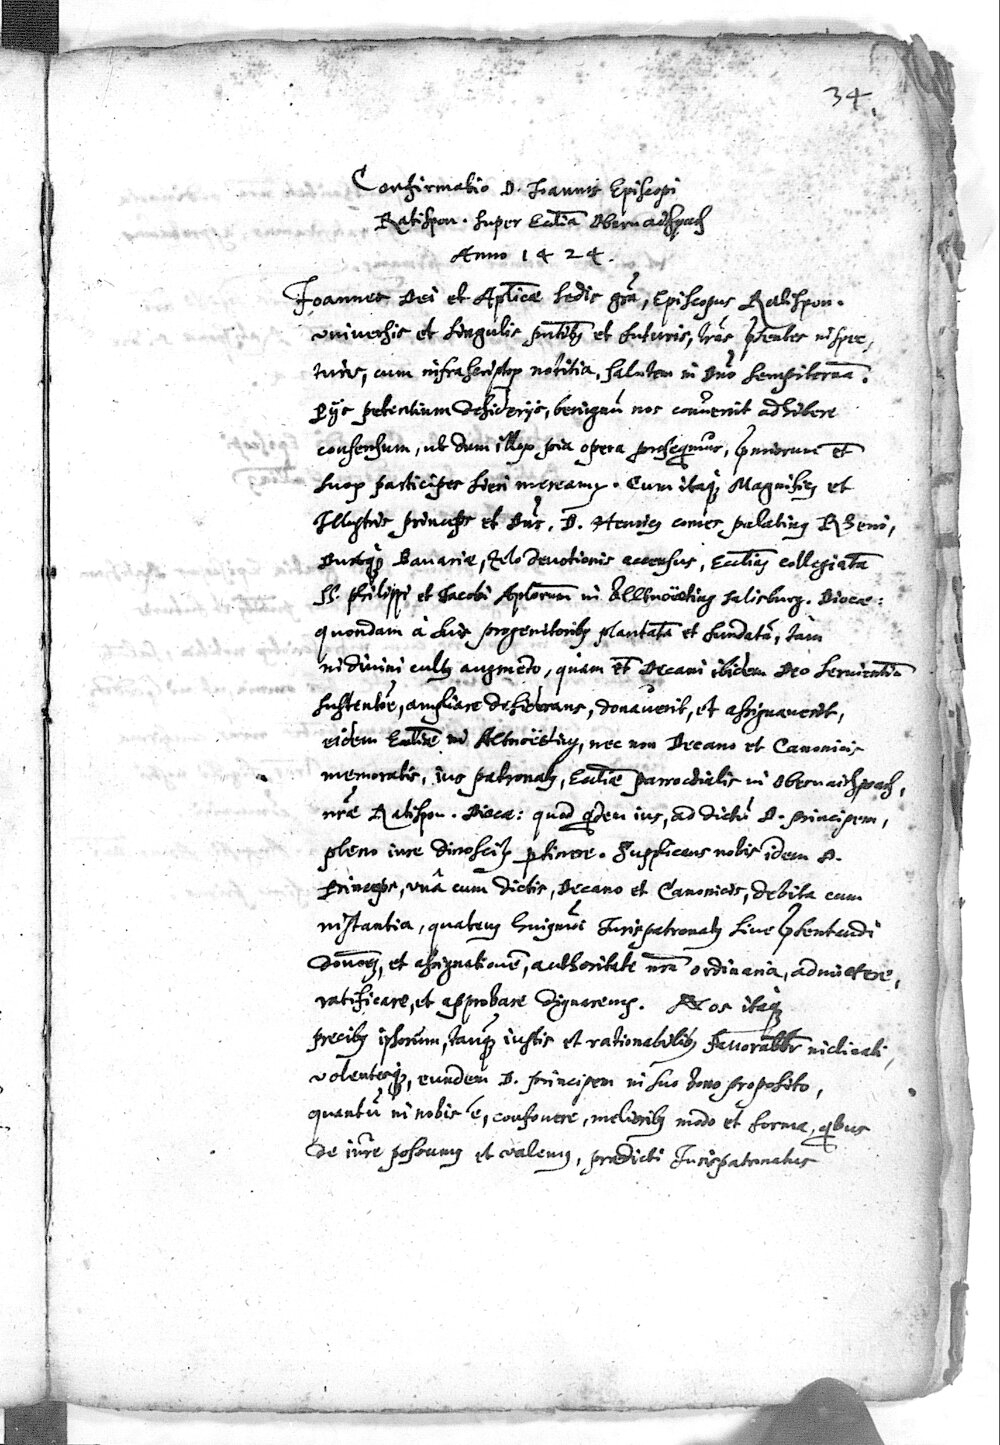 34.
Confirmatio D. Joannis Episcopi
Ratispon. super Ecctiā Obernaichpach
Anno 1424.
Joannes Dei et Aplicæ sedis grā, Episcopus Ratispon.
universis et singulis pntib9 et futuris, lrās pñtes inspec,
turis, cum infrascriptor notitia, salutem in Dno sempiternā.
Pijs petentium desiderijs, benignū nos convenit adhibere
consensum, ut dum illor pia opera prosequimur, præmiorum et
suor participes fieri mereamur. Cum itaq3 Magnific9 et
Illustris princeps et Dns, D. Henric9 comes palatin9 Rheni,
Duxq3 Bavariæ, zelo devotionis accensus, Ecctiā collegiatā
SS. Philippi et Jacobi Aplorum in Alltnoëting Salisburg. Diocæ:
quondam à suis progenitorib9 plantatā et fundatā, tam
in divini cult9 augmēto, quam et Decani ibidem Deo servientiū
sustentōe, ampliare desiderans, donaverit, et assignaverit,
eidem Ecctiæ in Altnoëting, nec non Decano et Canonicis
memoratis, ius patronat9, Ecctiæ parrochialis in Obernaichpach,
nræ Ratispon. Diocæ: quod qdem ius, ad dictū D. principem,
pleno iure dinoscit pertinere. Supplicans nobis idem D.
Princeps, unâ cum dictis, Decano et Canonicis, debita cum
instantia, quaten9 huiusmōi Jurispatronat9 sive pñtentandi
donōem, et assignationē, authoritate nrā ordinaria, admittere,
ratificare, et approbare dignarem9. Nos itaq3
precib9 ipsorum, tanq3 iustis et rationabilib9 favorabltr inclinati,
volentesq3, eundem D. principem in suo bono proposito,
quantū in nobis ē, confovere, meliorib9 modo et forma, qbus
de iure possum9 et valem9, prædicti Jurispatronatus